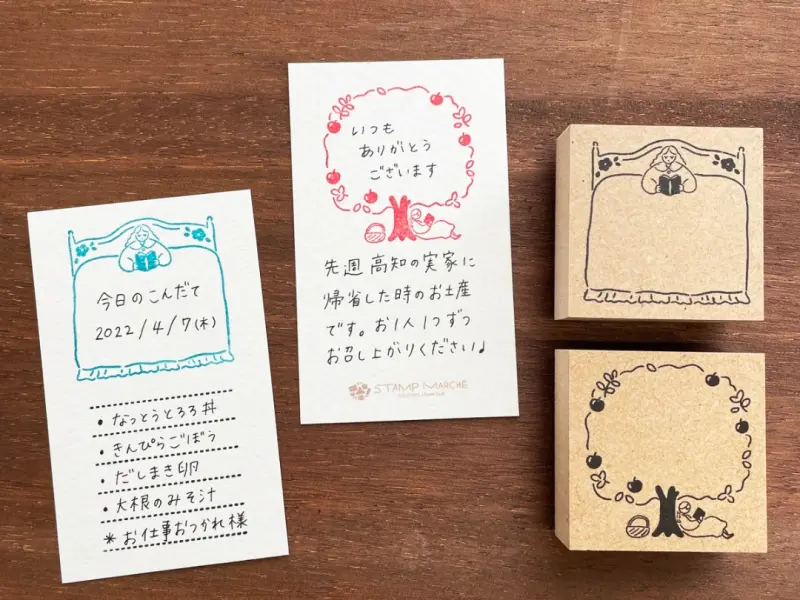 今日のこんだて
2022/4/7(木)
• なっとうとろろ丼
• きんぴらごぼう
• だしまき卵
• 大根のみそ汁
* お仕事おつかれ様
いつも
ありがとう
ございます
先週 高知の実家に
帰省した時のお土産
です。お1人1つずつ
お召し上がりください♩
STAMP MARCHÉ